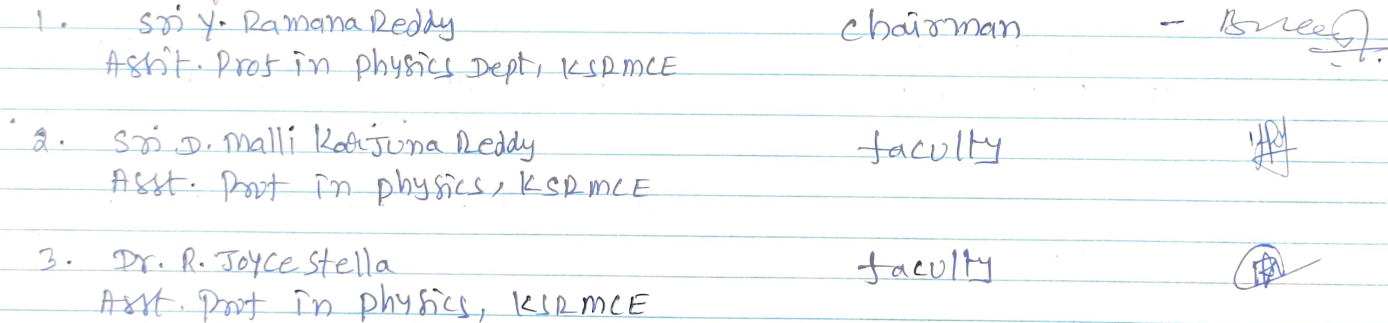 1. Sri Y. Ramana Reddy Chairman -
Asst. Prof in Physics Dept, KSRMCE
2. Sri D. Malli Karjuna Reddy faculty
Asst. Prof in physics, KSRMCE
3. Dr. R. Joyce Stella faculty
Asst. Prof in physics, KSRMCE